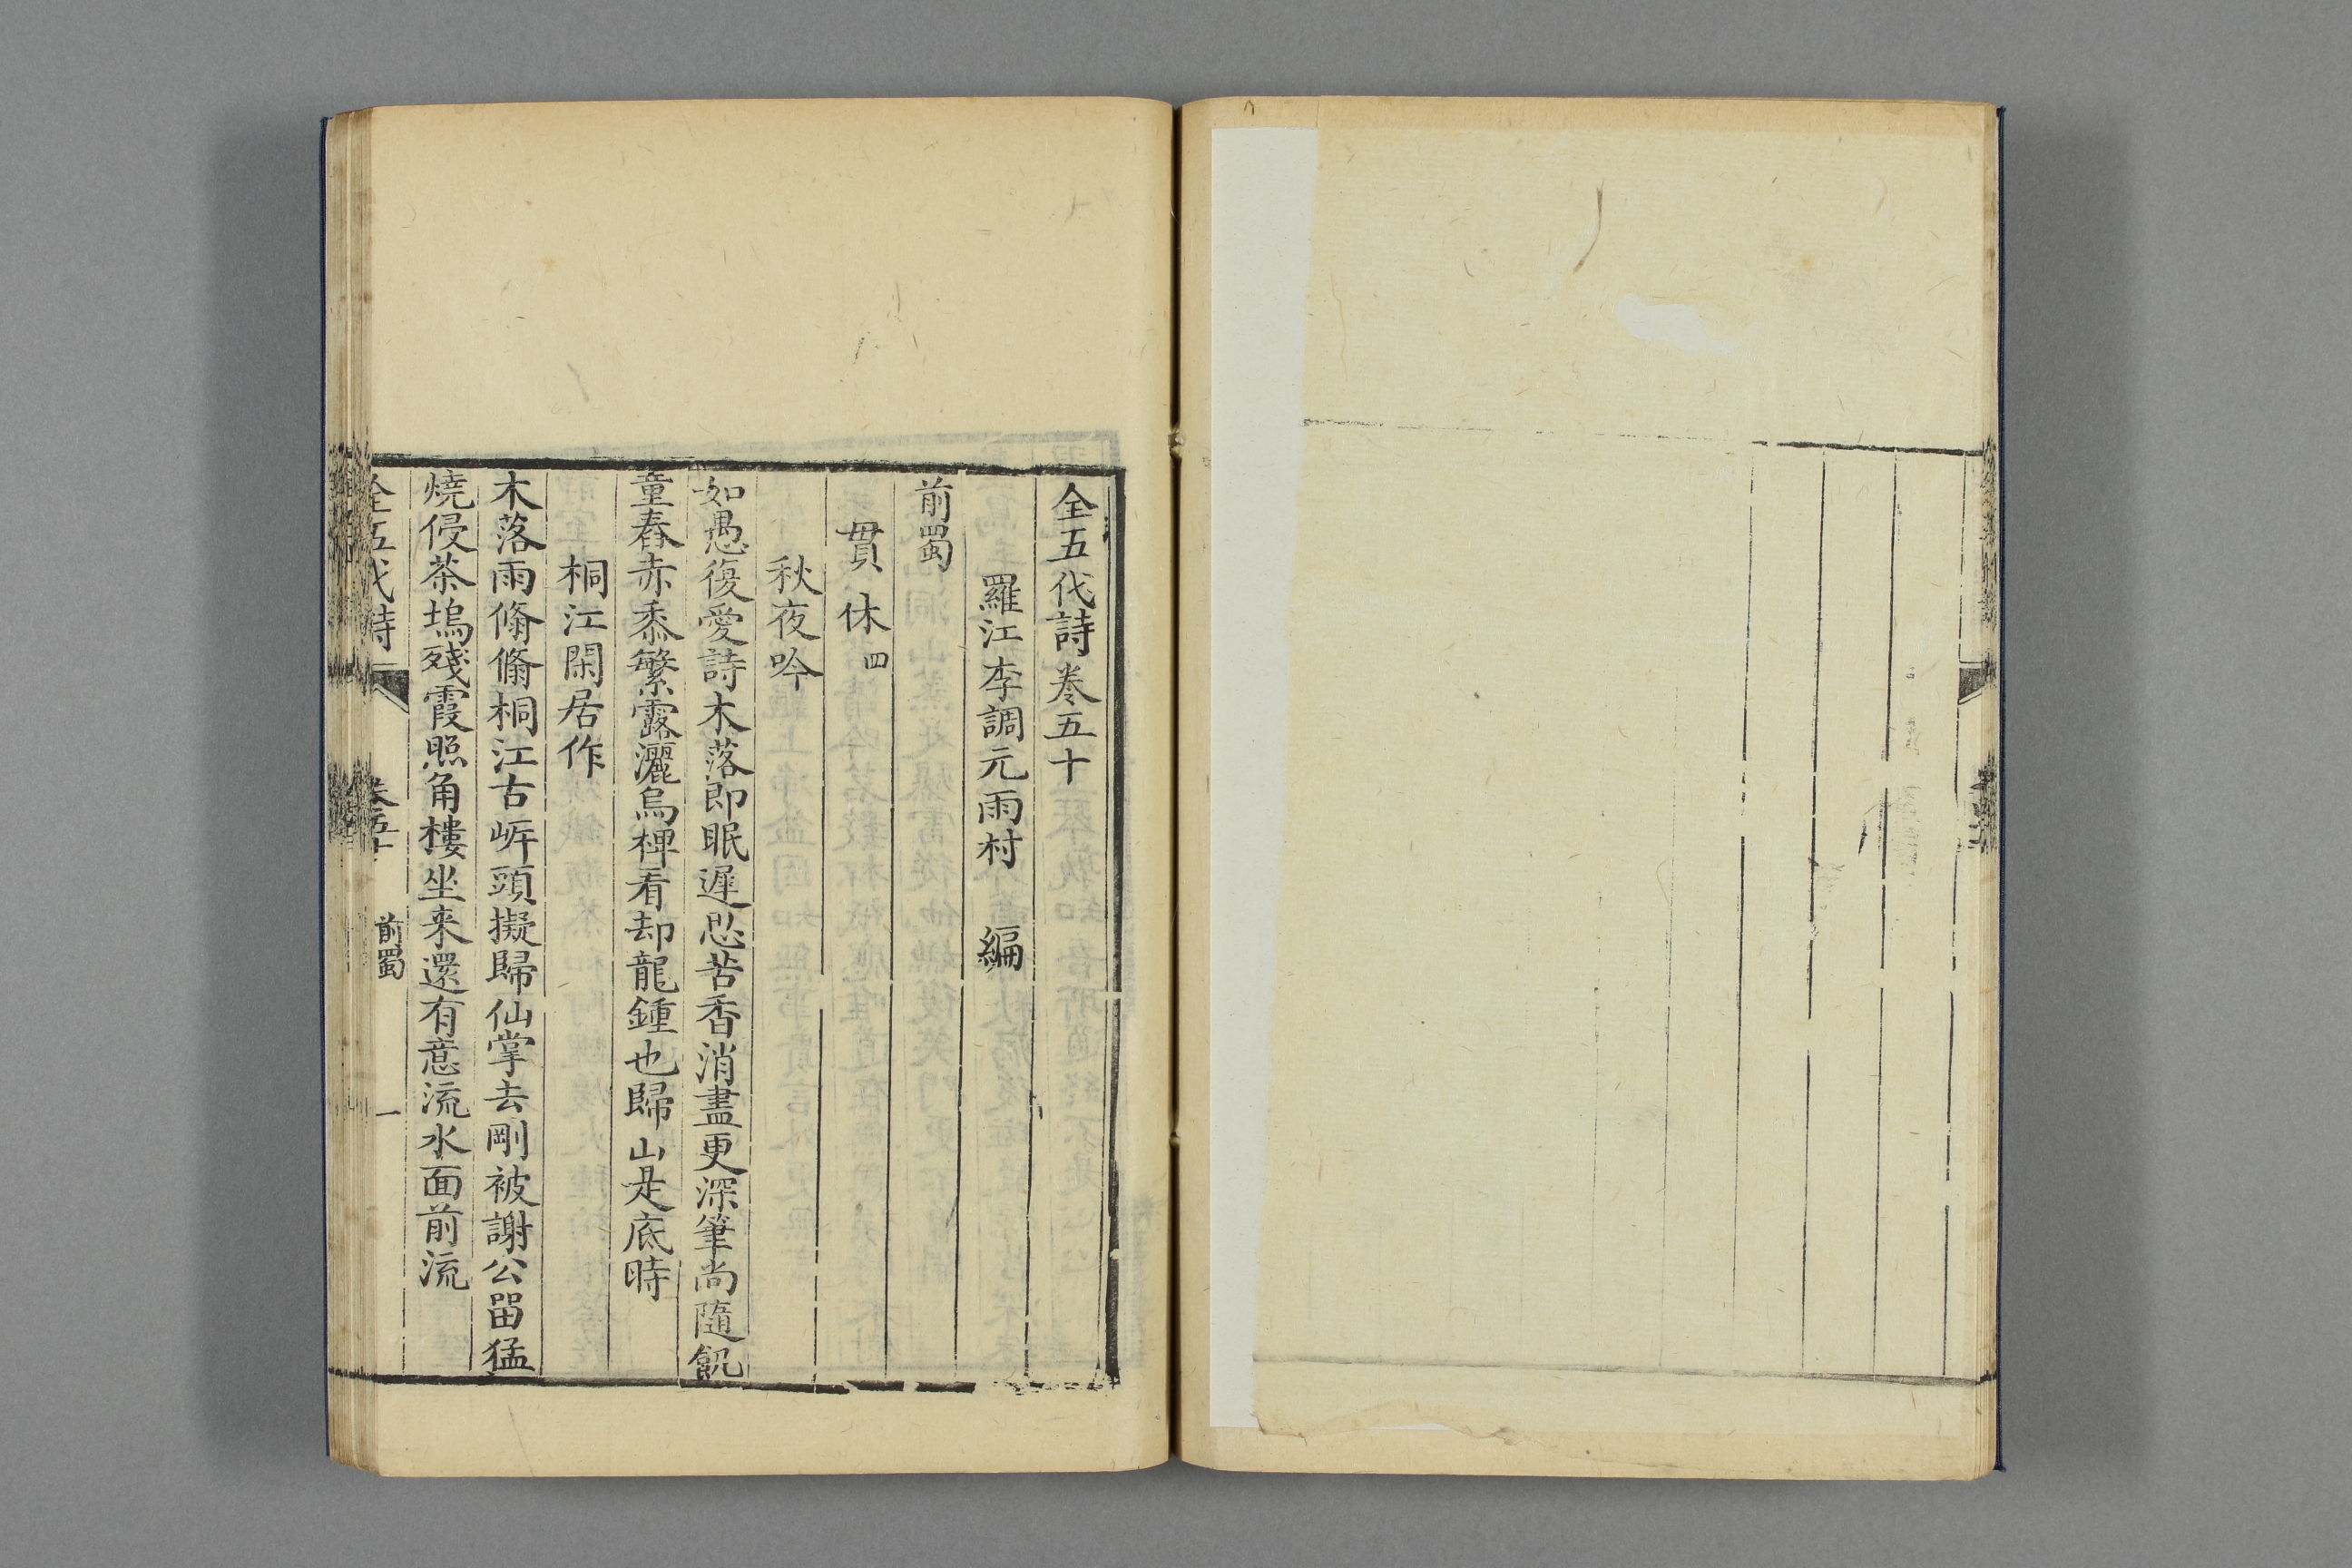 全五代詩卷五十
羅江李調元雨村 編
前蜀
貫休四
秋夜吟
如愚復愛詩木落即眠遲思苦香消盡更深筆尚隨飢
童舂赤黍繁露灑烏椑看却龍鍾也歸山是底時
桐江閑居作
木落雨翛翛桐江古岸頭擬歸仙掌去剛被謝公畱猛
燒侵茶塢殘霞照角樓坐来還有意流水面前流
全五代詩 卷五十 前蜀 一